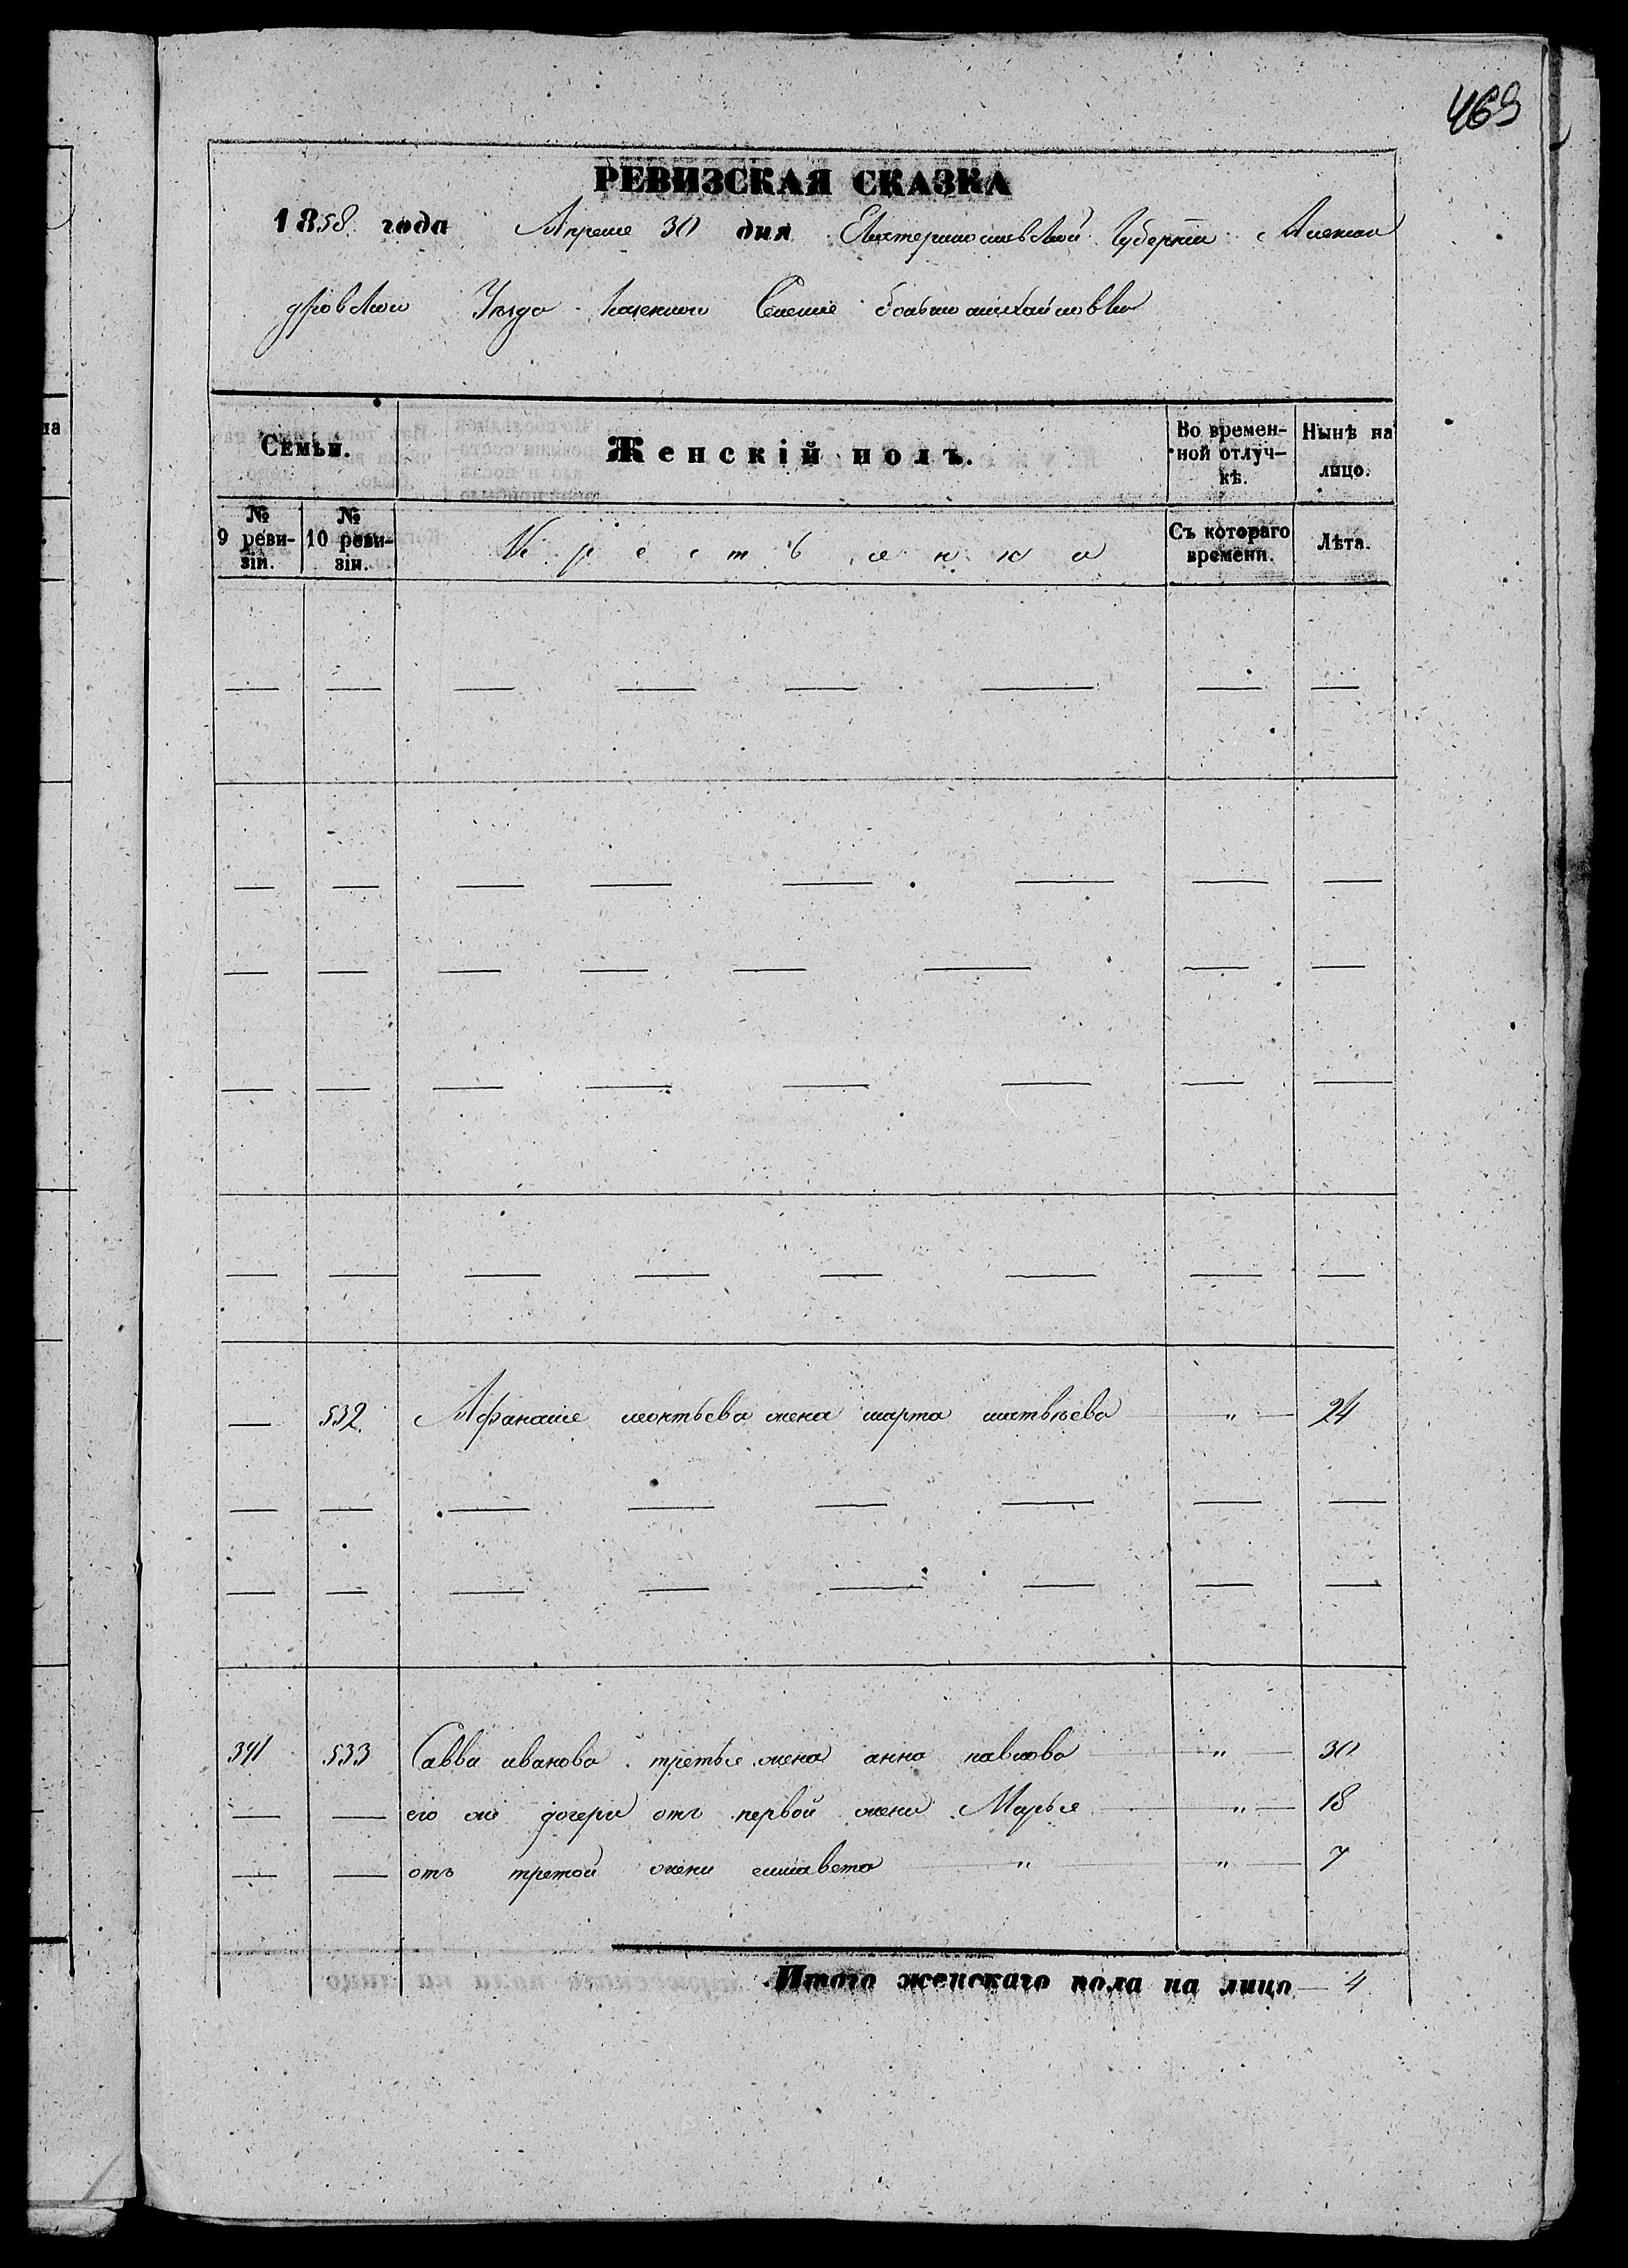 469
РЕВИЗСКАЯ СКАЗКА
1858 года Апреля 30 дня Екатеринославской Губернии Алексан
дровского Уезда казенного Селения большой михайловки
Семьи. Женскій полъ. Во времен- Нынѣ на
ной отлуч- лицо.
кѣ.
№ №
9 реви- 10 реви- Крестьянка Съ котораго Лѣта.
зіи. зіи. времени.
— — — — — — — —
— — — — — — — —
— — — — — — — —
— — — — — — — —
— — — — — — — —
— 532 Афанасия леонтьева жена марта матвѣева — " — 24
— — — — — — — —
— — — — — — — —
391 533 Савви иванова третья жена анна павлова — " — 30
— — его же дочери отъ первой жени Марья — " — 18
— — отъ третой жени елисавета — " — " — 7
Итого женскаго пола на лицо — 4